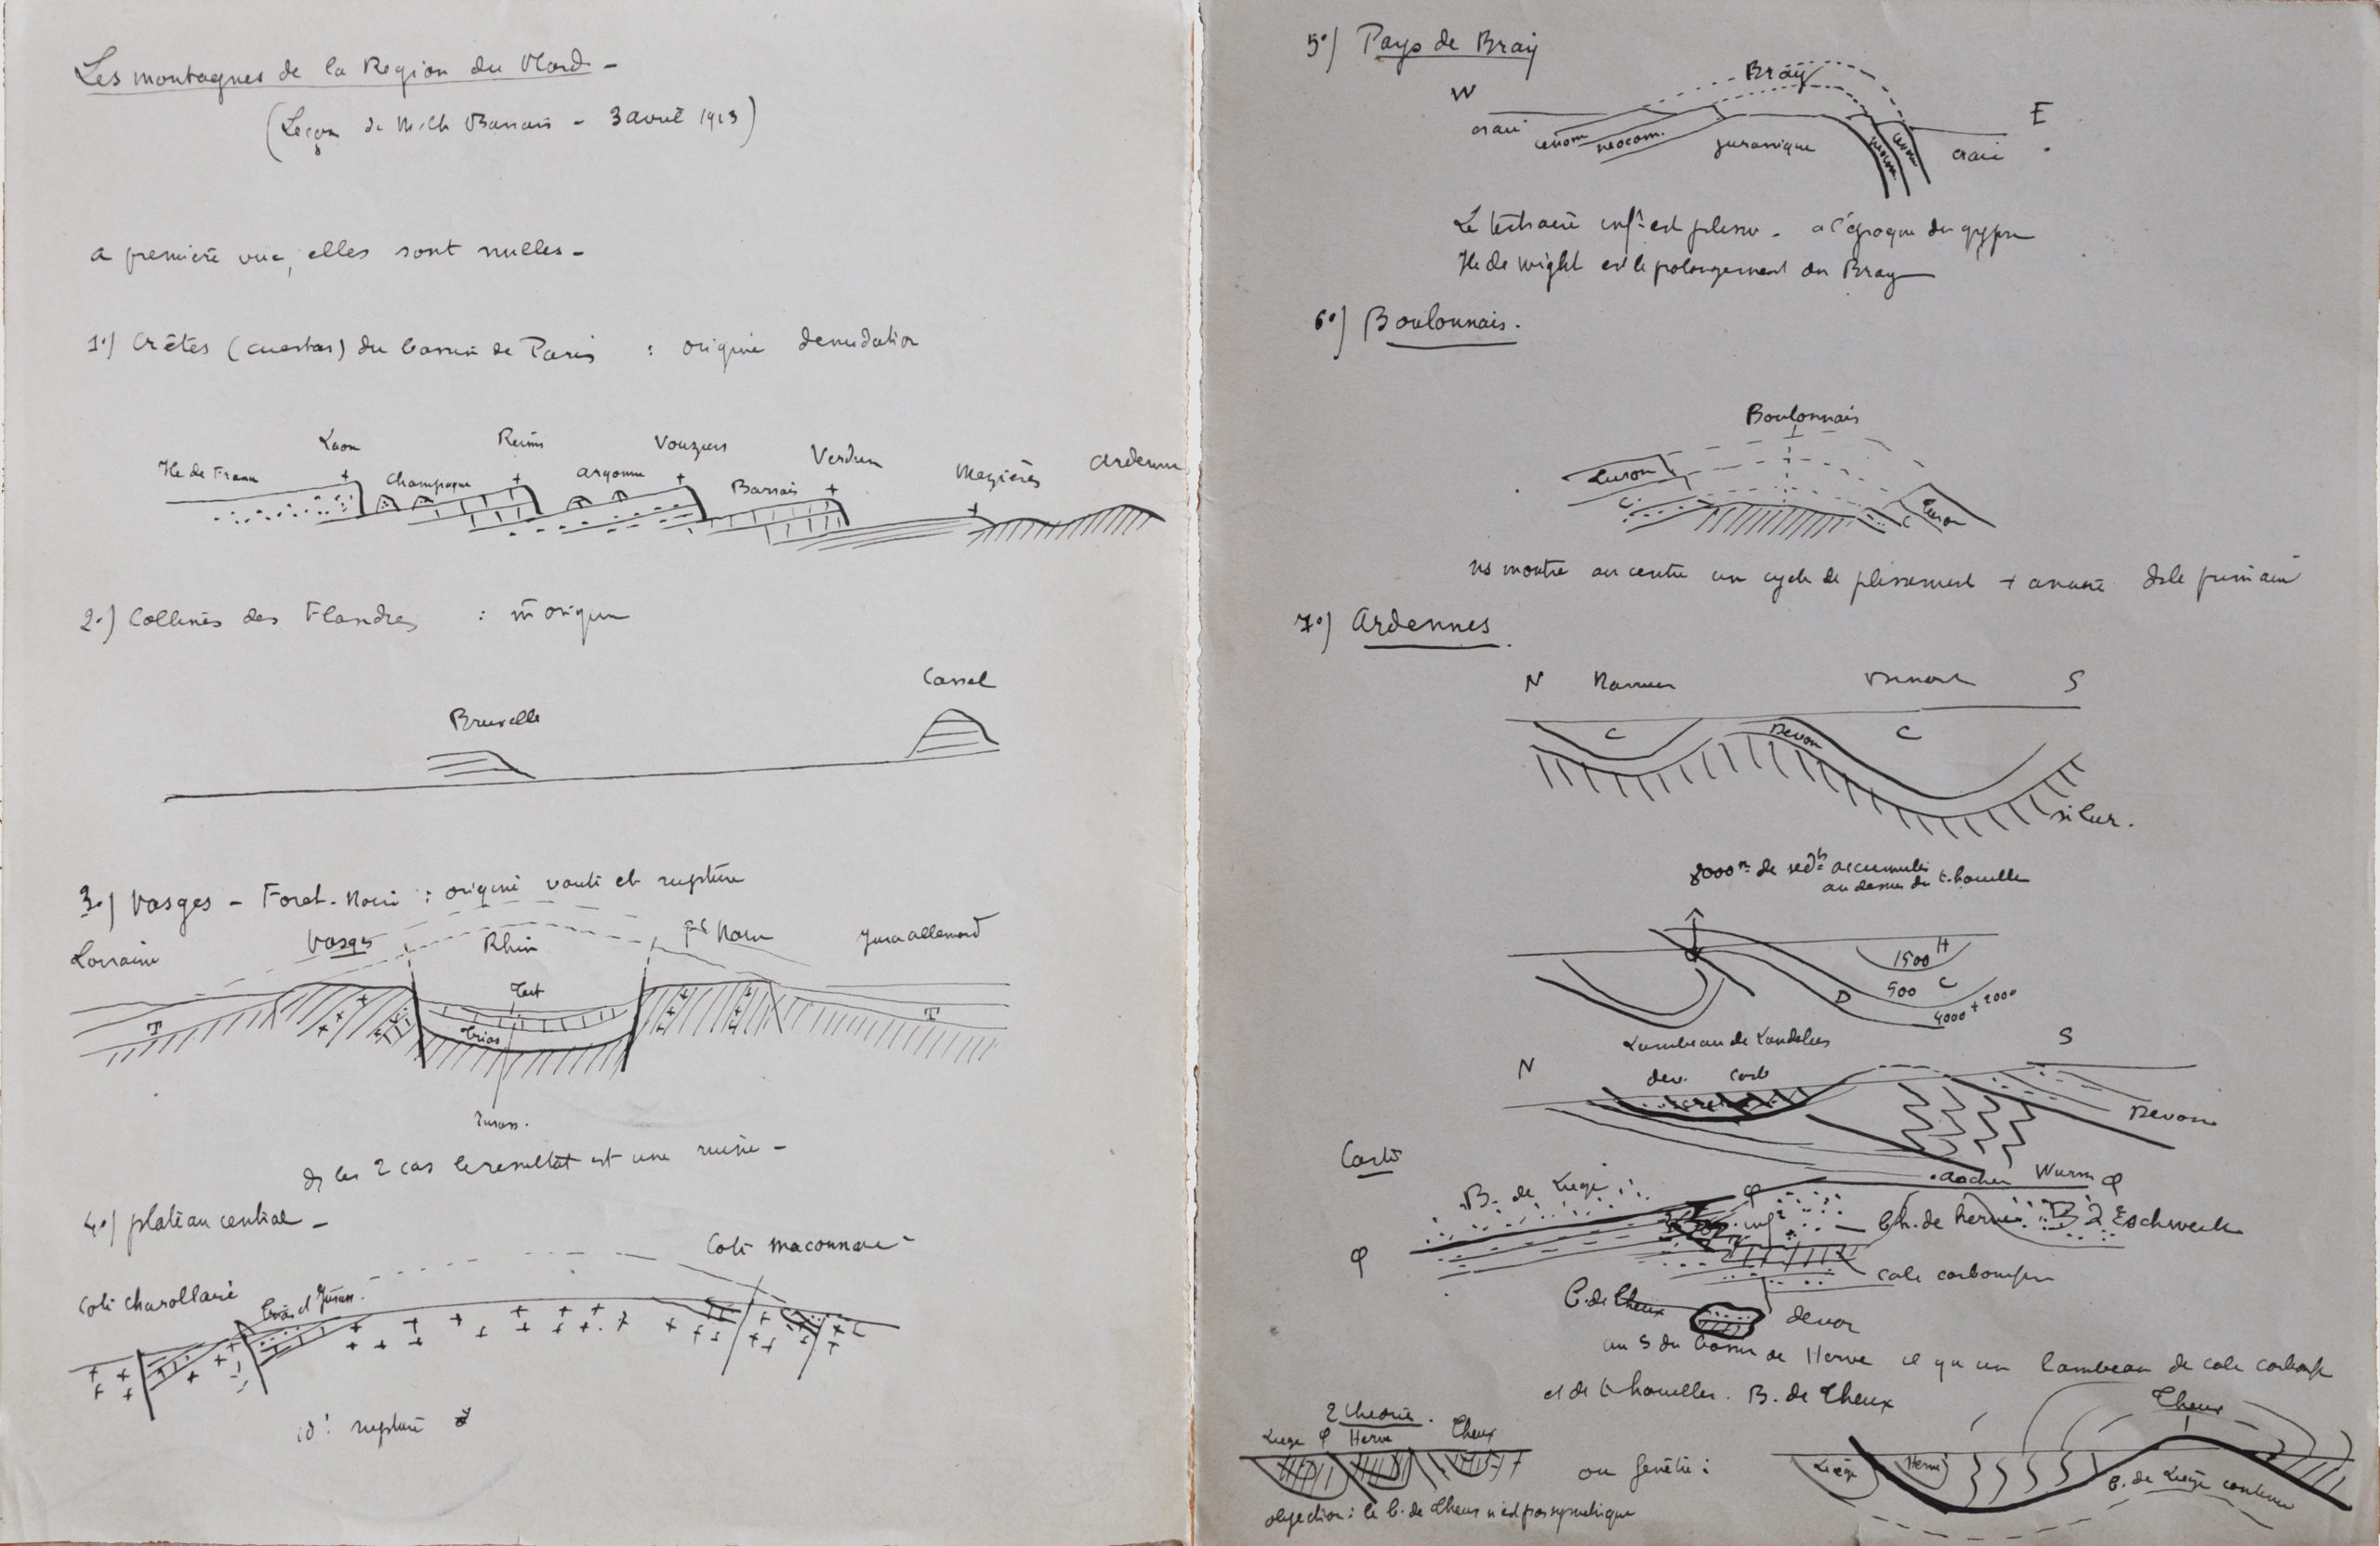 Les montagnes de la Region du Nord -
(Leçon de Mr Ch Barrois - 3 avril 1913)
a première vue, elles sont nulles -
1°) Crêtes (cuestas) du bassin de Paris : origine denudation
Laon Reims Vouziers Verdun Mezières Ardenne
Ile de France Champagne argonne Barrois
2°) Collines des Flandres : m̄ origine
Cassel
Bruxelle
3°) Vosges - Foret-Noire : origine voute et rupture
Lorraine Vosges Rhin Ft Noire Jura allemand
Tert
T Trias T
Jurass.
ds les 2 cas le resultat est une ruine -
4°) plateau central -
Coté maconnais
Coté charollais Trias et Jurass.
id : rupture
5°) Pays de Bray
Bray
W E
craie cenom neocom. jurassique neocom. cenom craie
Le tertiaire infr est plissé - a l'époque du gypse
Ile de wight est le prolongement du Bray
6°) Boulonnais.
Boulonnais
Turon Turon
C C
ns montre au centre un cycle de plissement + ancien ds le primaire
7°) Ardennes
N Namur Dinant S
C Devon C
silur.
8000m de sedts accumulés
au dessus du t. houiller
1500 H
500 C
D 4000 + 2000
Lambeau de Landelies
N S
dev. Carb
Devon
Carte
Aachen Wurm φ
B. de Liège φ
infr Ch. de Herve B d Eschweiler
φ
calc carbonifer
B. de Theux devon
au S du bassin de Herve il y a un lambeau de calc carbonif
et de t. houiller. B. de Theux
2 theorie.
Liege φ Herve Theux
ou fenêtre :
Theux
Liège Herve B. de Liège continue
objection : le b. de Theux n'est pas symetrique